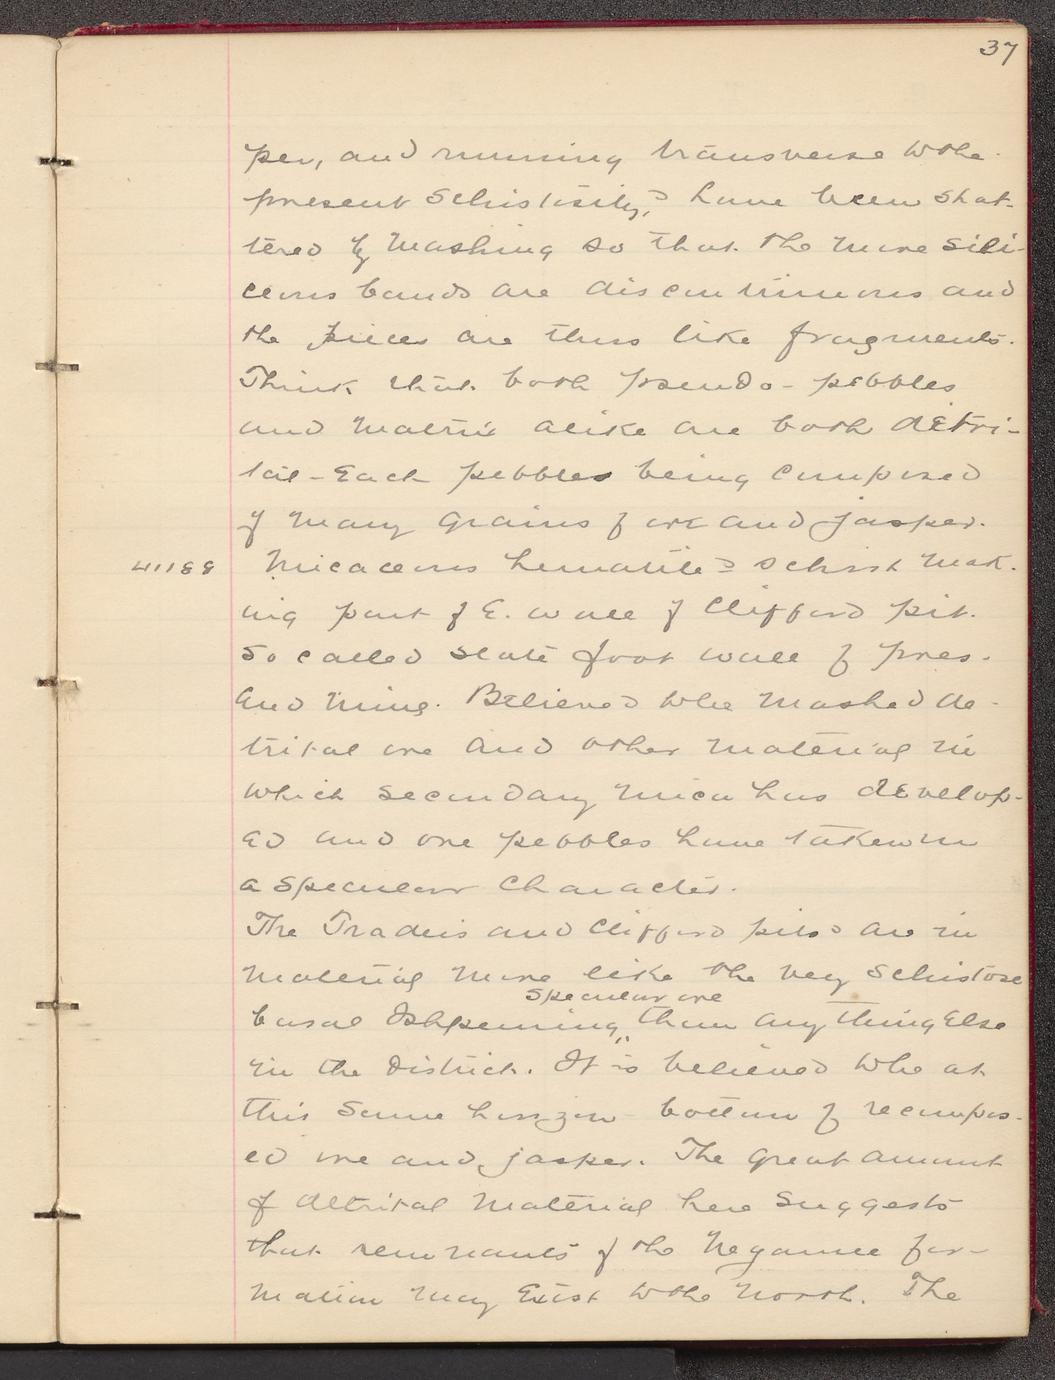 37
per, and running transverse to the
present schistosity, have been shat-
tered by mashing so that the more sili-
ceous bands are discontinuous and
the pieces are thus like fragments.
Think that both pseudo-pebbles
and matrix alike are both detri-
tal - Each pebble being composed
of many grains of ore and jasper.
41188 Micaceous hematite schist mak-
ing part of E. wall of Clifford pit.
So called slate foot wall of pres-
ent mine. Believed to be mashed de-
trital ore and other material in
which secondary mica has develop-
ed and ore pebbles have taken on
a specular character.
The Traders and Clifford pits are in
material more like the very schistose
specular ore
basal Ishpeming than anything else
in the district. It is believed to be at
this same horizon - bottom of recompos-
ed ore and jasper. The great amount
of detrital material here suggests
that remnants of the Negaunee for-
mation may exist to the north. The